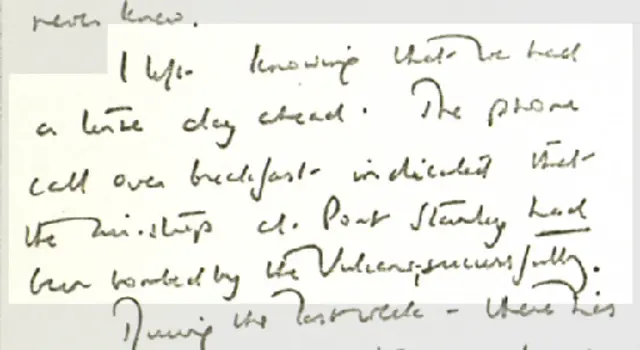 never knew.
I left knowing that we had
a tense day ahead. The phone
call over breakfast indicated that
the air-strip at Port Stanley had
been bombed by the Vulcans, successfully.
During the last week - there has